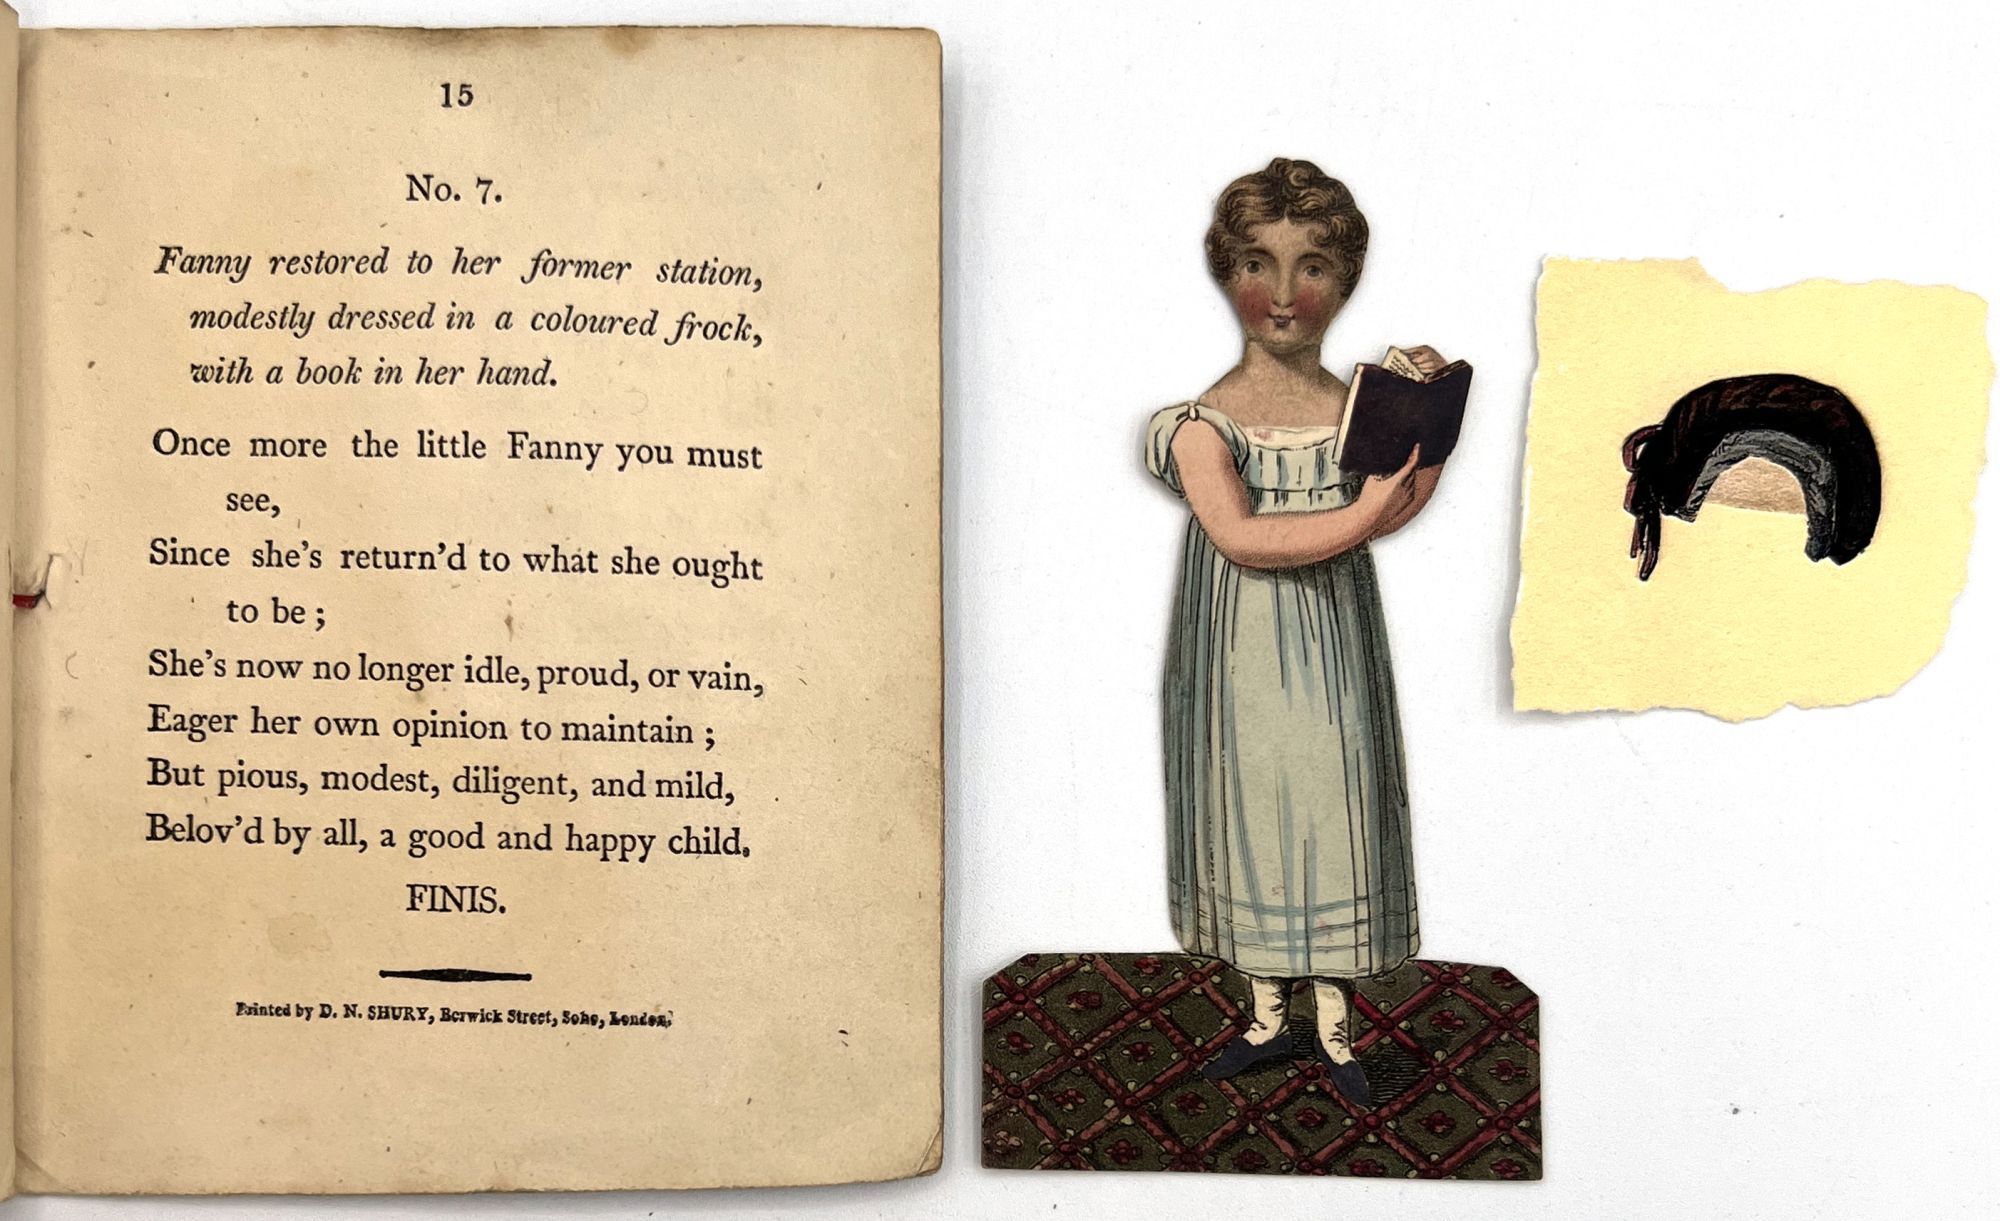 15
No. 7.
Fanny restored to her former station,
modestly dressed in a coloured frock,
with a book in her hand.
Once more the little Fanny you must
see,
Since she's return'd to what she ought
to be ;
She's now no longer idle, proud, or vain,
Eager her own opinion to maintain ;
But pious, modest, diligent, and mild,
Belov'd by all, a good and happy child.
FINIS.
Printed by D. N. SHURY, Berwick Street, Soho, London.